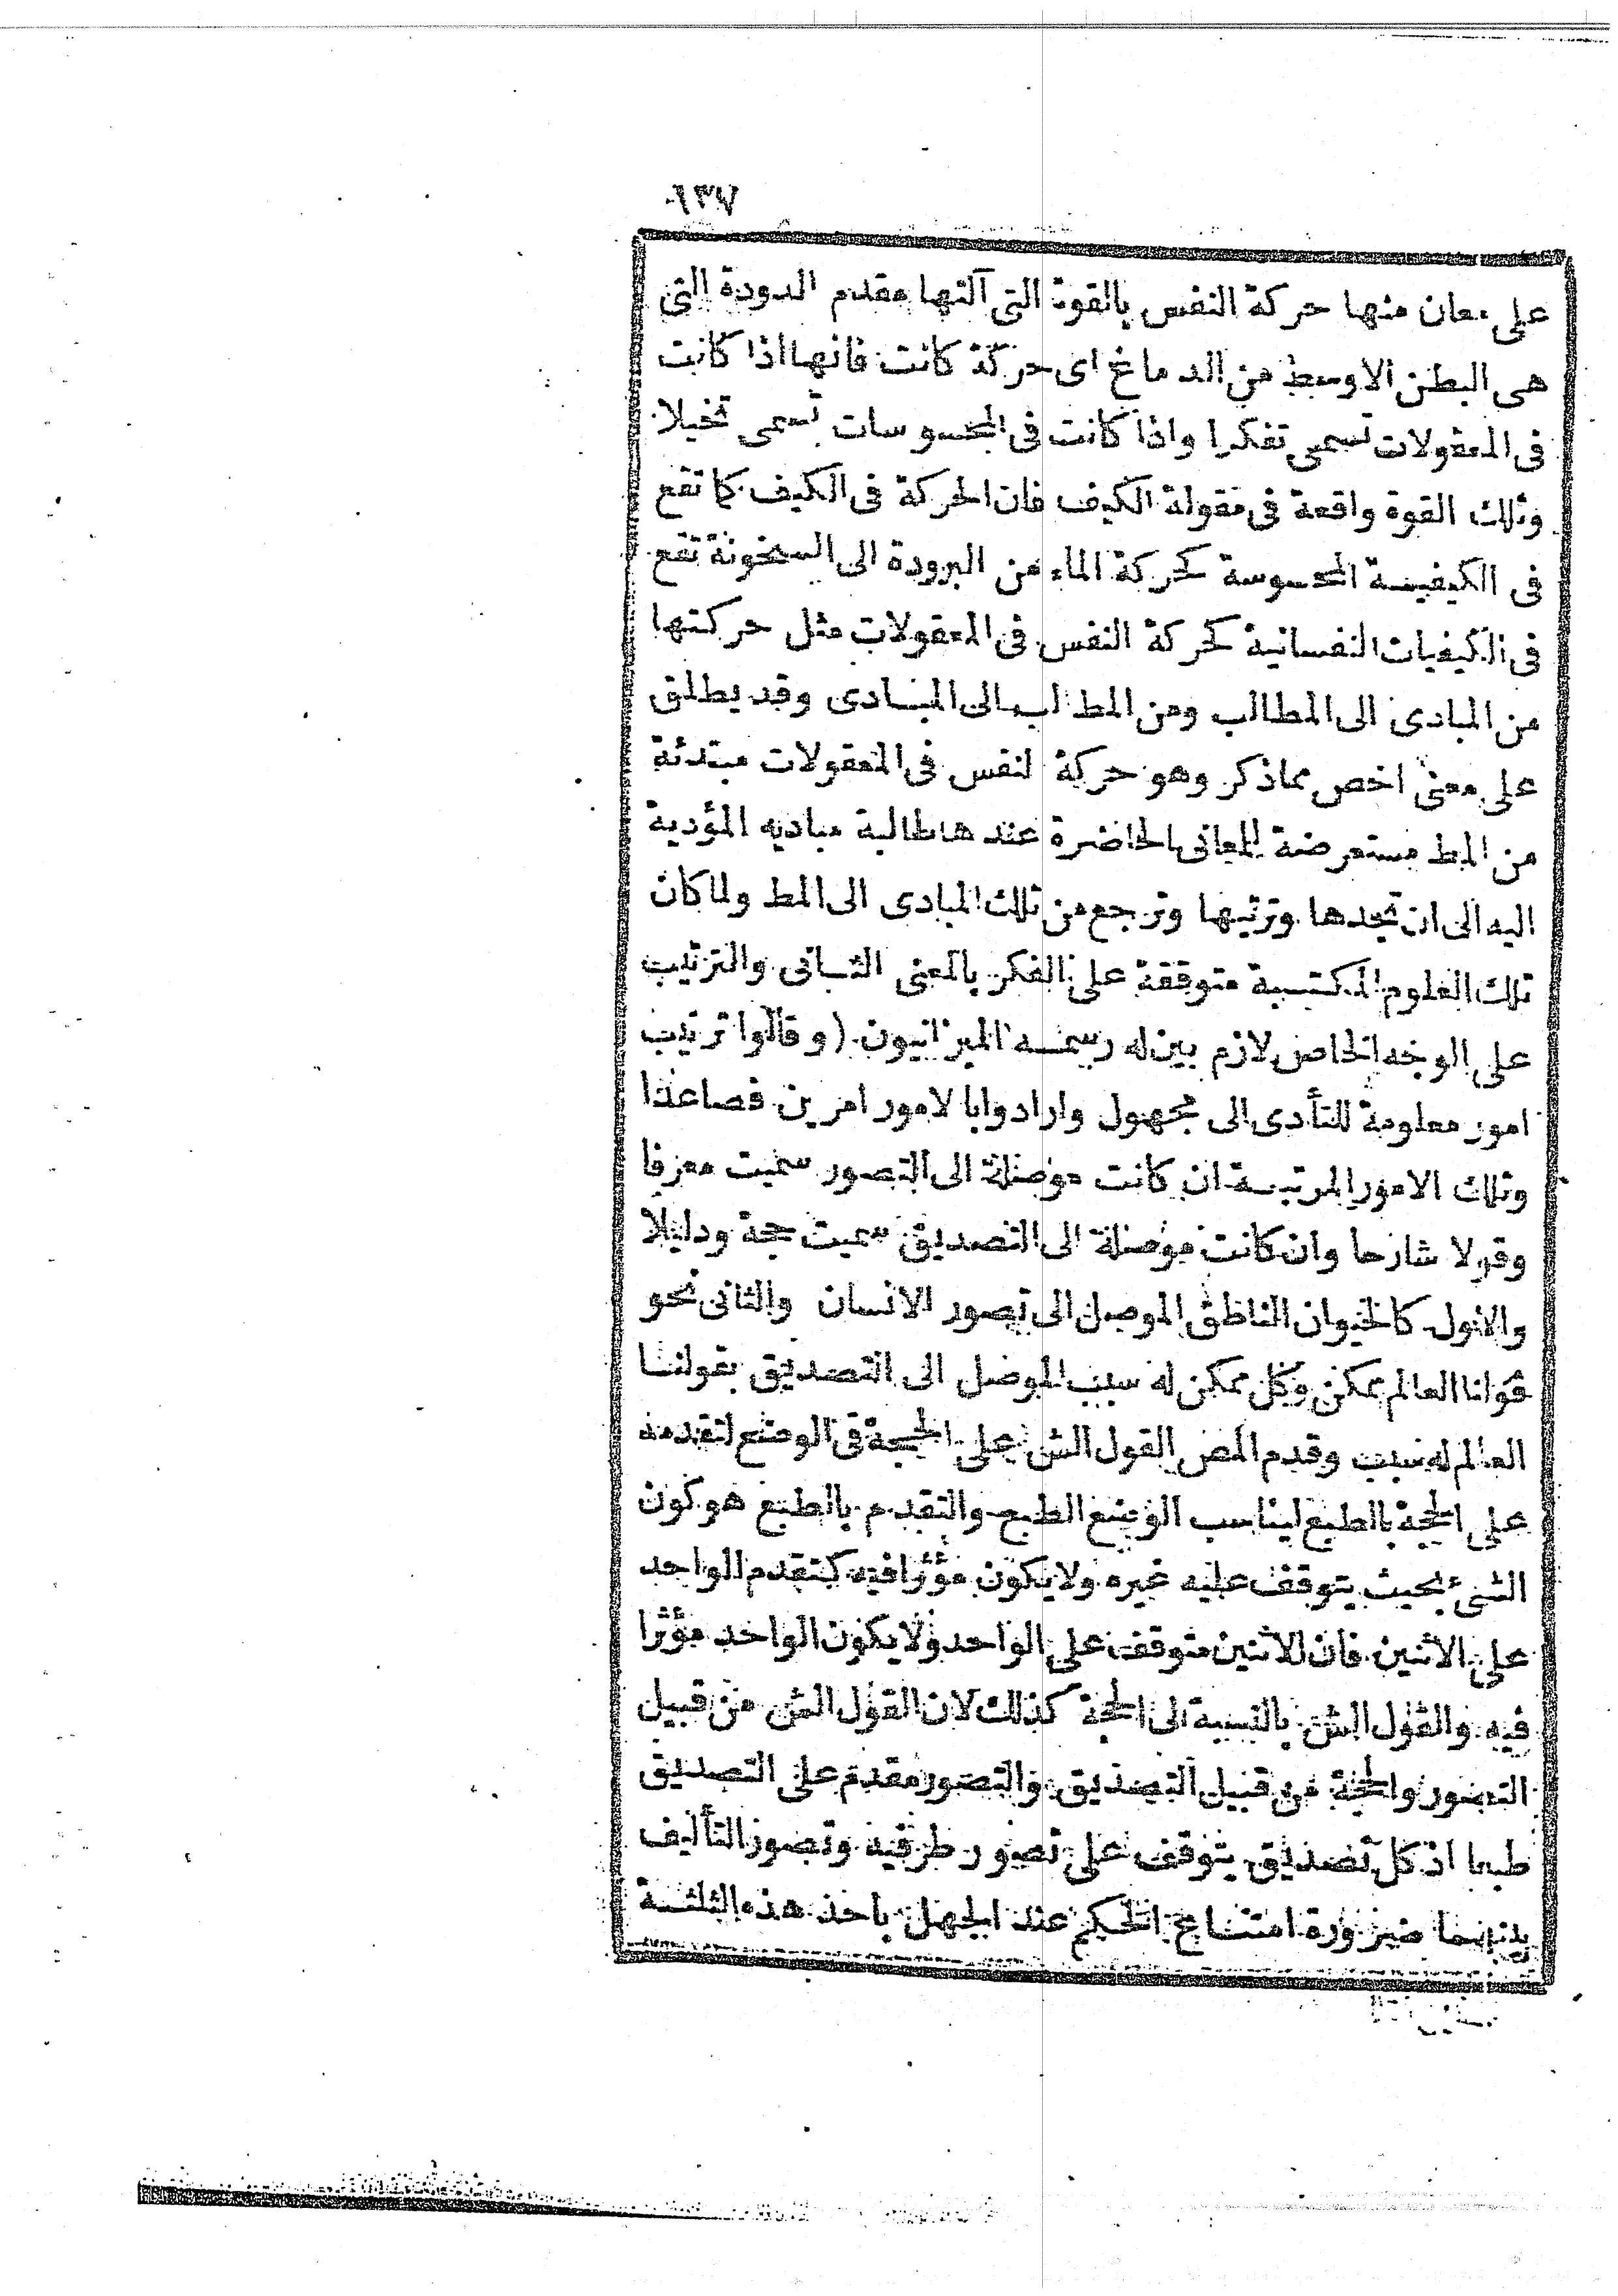 ١٣٧
على معان منها حركة النفس بالقوة التى آلتها مقدم الدودة التى
هى البطن الاوسط من الدماغ اى حركة كانت فانها اذا كانت
فى المعقولات تسمى تفكرا واذا كانت فى المحسوسات تسمى تخيلا
وتلك القوة واقعة فى مقولة الكيف فان الحركة فى الكيف كما تقع
فى الكيفيـة المحسوسة كحركة الماء من البرودة الى السخونة تقع
فى الكيفيات النفسانية كحركة النفس فى المعقولات مثل حركتها
من المبادى الى المطالب ومن المطالب الى المبـادى وقد يطلق
على معنى اخص مما ذكر وهو حركة لنفس فى المعقولات مبتدئة
من المط مستعرضة للمعانى الحاضرة عندها طالبة مباديه المؤدية
اليه الى ان تجدها وترتبها وترجع من تلك المبادى الى المط ولما كان
تلك العلوم المكتسبة متوقفة على الفكر بالمعنى الثـانى والترتيب
على الوجه الخاص لازم بين له رسمـه الميزانيون (وقالوا ترتيب
امور معلومة للتأدى الى مجهول وارادوا بالامور امرين فصاعدا
وتلك الامور المرتبـة ان كانت موصلة الى التصور سميت معرفا
وقولا شارحا وان كانت موصلة الى التصديق سميت حجة ودليلا
والاول كالحيوان الناطق الموصل الى تصور الانسان والثانى نحو
قولنا العالم ممكن وكل ممكن له سبب الموصل الى التصديق بقولنـا
العالم له سبب وقدم المص القول الش على الحجة فى الوضع لتقدمه
على الحجة بالطبع ليناسب الوضع الطبع والتقدم بالطبع هو كون
الشئ بحيث يتوقف عليه غيره ولا يكون مؤثرا فيه كتقدم الواحد
على الاثنين فان الاثنين متوقف على الواحد ولا يكون الواحد مؤثرا
فيه والقول الش بالنسبة الى الحجة كذلك لان القول الش من قبيل
التصور والحجة من قبيل التصديق والتصور مقدم على التصديق
طبعا اذ كل تصديق يتوقف على تصور طرفيه وتصور التأليف
بينهما ضرورة امتنـاع الحكم عند الجهل باحد هذه الثلثـة